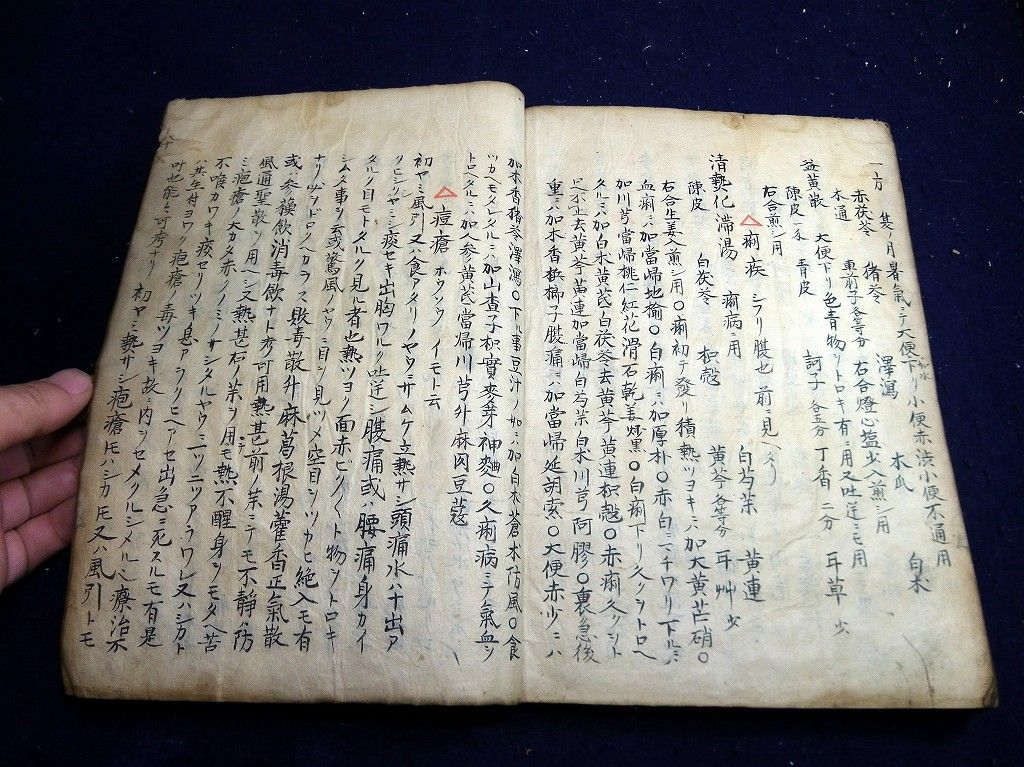 一方 隻ノ月暑氣ニテ大便下リ小便赤渋小便不通用
赤茯苓 猪苓 澤瀉 木瓜 白朮
木通 車前子各等分 右合燈心塩少入煎シ用
益黄散 大便下リ色青物ヲトロキ有ニ用又吐逆ニモ用
陳皮 青皮 訶子各五分 丁香二分 耳草少
右合煎シ用
△痢疾 シフリ腹也前ニ見ヘタリ
清熱化滞湯 痢病ニ用 白芍薬 黄連
陳皮 白茯苓 枳殻 黄芩各等分 耳艸少
右合生姜入煎シ用〇痢初テ發リ積熱ツヨキニ加大黄芒硝〇
血痢ニハ加當帰地榆〇白痢ニハ加厚朴〇赤白ニチワリ下ルニハ
加川芎當帰桃仁紅花滑石乾姜炒黒〇白痢下リ久クシトロヘ
タルニハ加白朮黄芪白茯苓去黄芩黄連枳殻〇赤痢久クシト
足不止去黄芩黄連加當帰白芍薬白朮川芎阿膠〇裏急後
重ニハ加木香檳榔子腹痛ニハ加當帰延胡索〇大便赤少ニハ
加木香猪苓澤瀉〇下ル事豆汁ノ如ニハ加白朮蒼朮防風〇食
ツカヘモタレタルニハ加山査子枳實麥芽神麯〇久痢病ニテ氣血ヲ
トロヘタルニハ加人参黄芪當帰川芎升麻肉豆蔲
△痘瘡 ホウソウ イモト云
初ヤミ風引又食アタリノヤウニサムケ立熱サシ頭痛水ハナ出ア
クヒシツヤミシ痰セキ出胸ワルク吐逆シ腹痛或ハ腰痛身カイ
タルク目モトタルク見ル者也熱ツヨク面赤ヒクヒクト物ヲトロキ
シムタ事ヲ云或驚風ノヤウニ目ヲ見ツメ空目ヲツカヒ絶入モ有
ナリ少シトロクカラス敗毒散升麻葛根湯藿香正氣散
或ハ参穣飲消毒飲ナト考可用熱甚ニハ前ノ薬ニテモ不静ハ防
風通聖散ヲ用ヘシ又熱甚右ノ薬ヲ用モ熱不醒身ヲモタヘ苦
ミ疱瘡ノ大カタ赤ノノミノサシタルヤウニ一ツ二ツアラワレ又ハシカト
不喰カワキ痰セリツキ息アラクヒヘアセ出急ニ死スルモ有是
ハ其生付ヨワク疱瘡ノ毒ツヨキ故ニ内ヲセメクルシメル也療治不
叶也能々可考ナリ 初ヤミ熱サシ疱瘡トモハシカトモ又ハ風引トモ